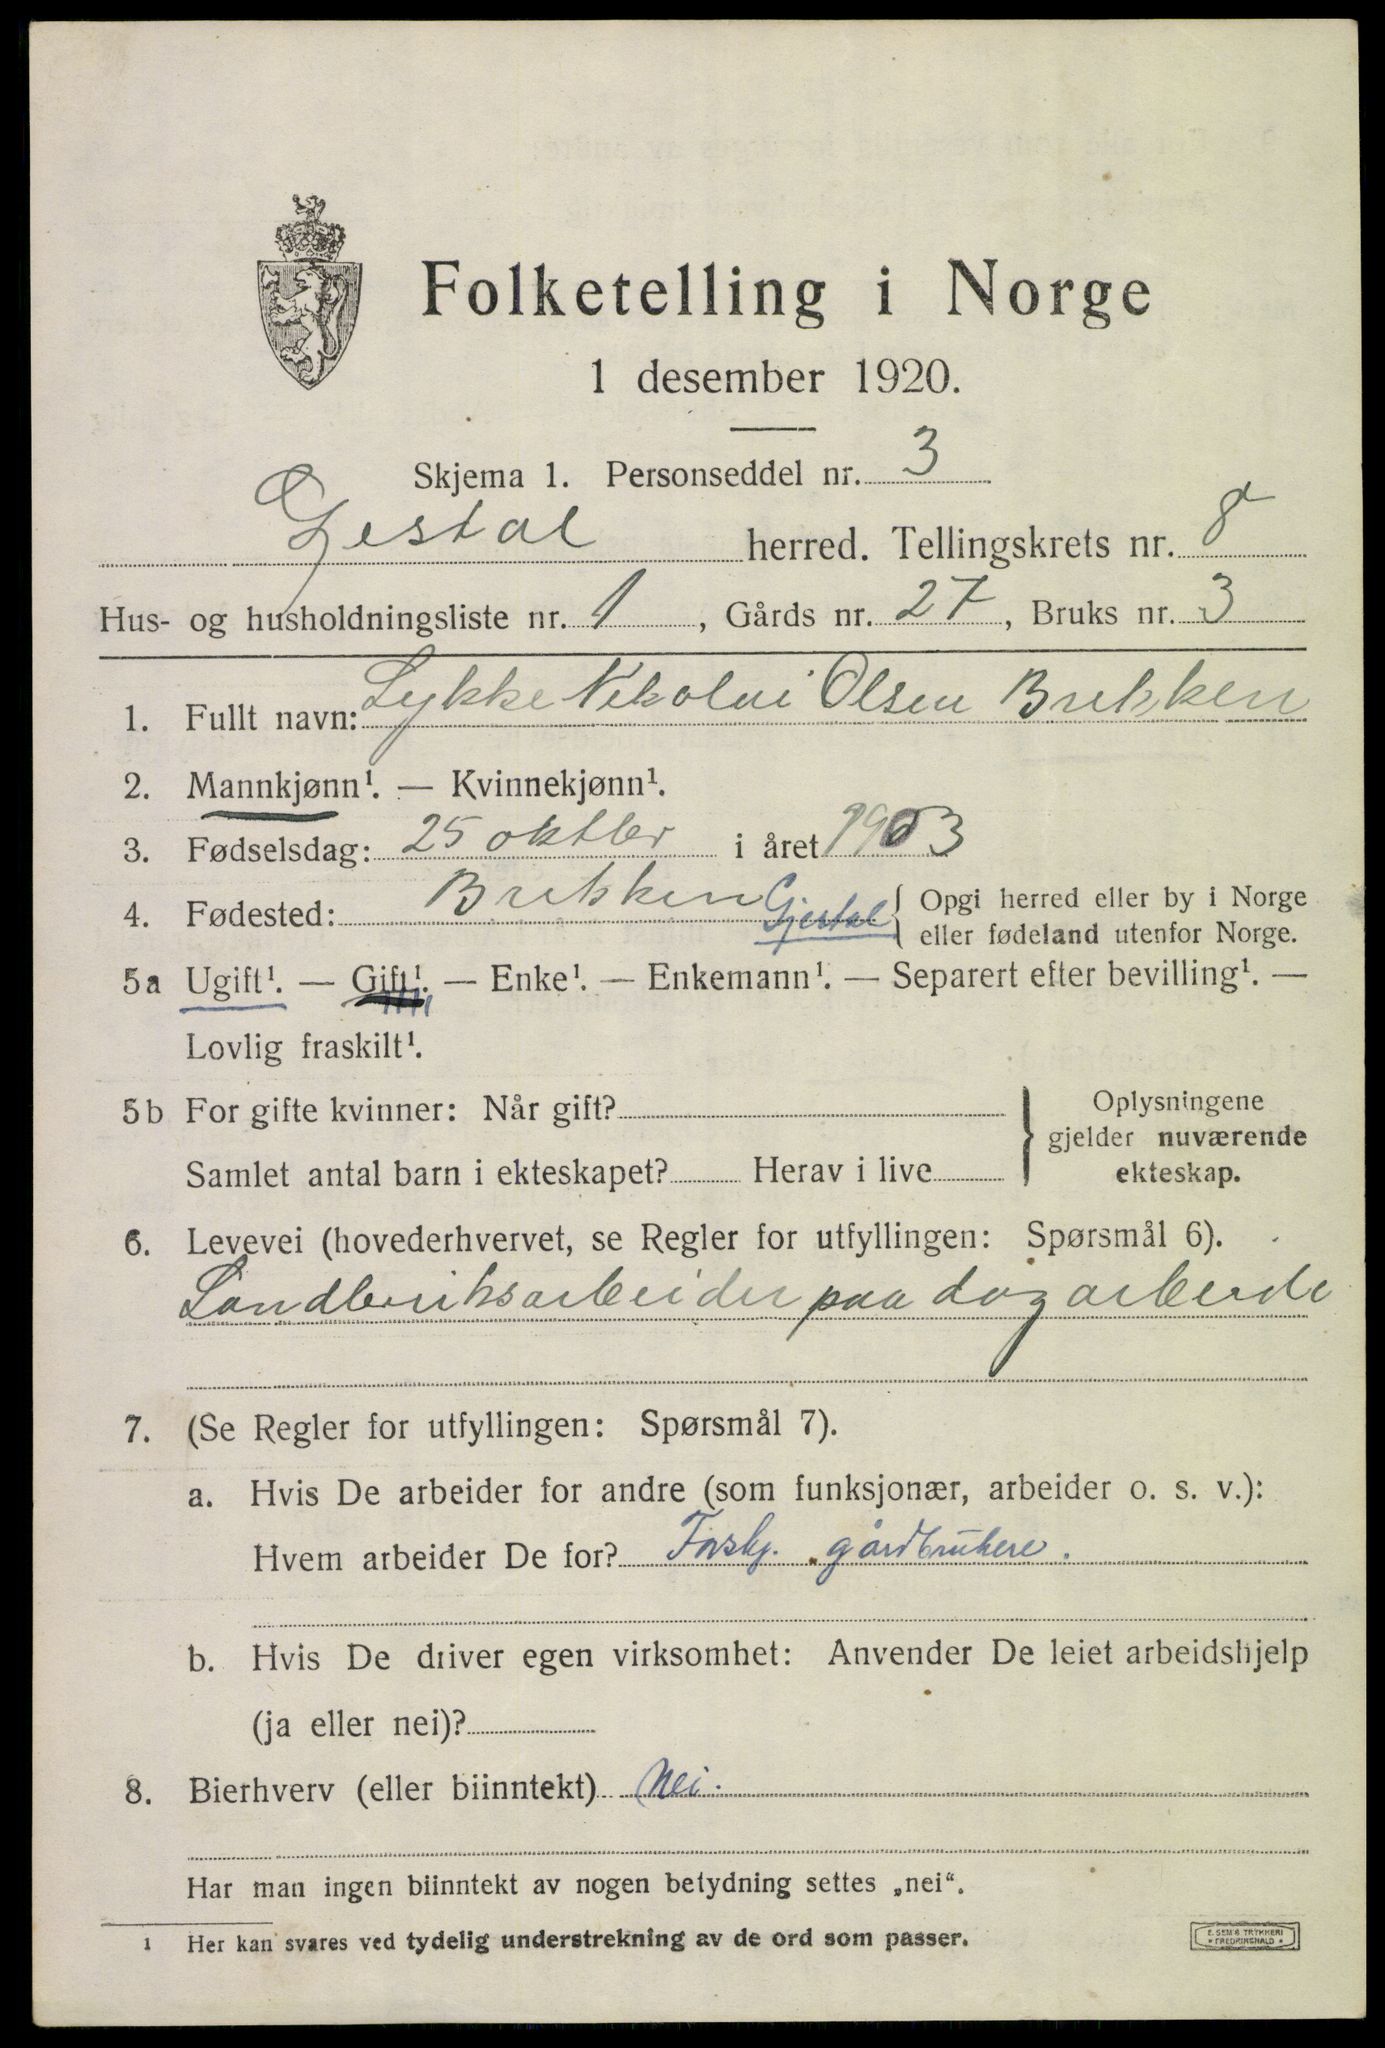 Folketelling i Norge
1 desember 1920.
Skjema 1. Personseddel nr. 3
Gestal herred. Tellingskrets nr. 8
Hus- og husholdningsliste nr. 1, Gårds nr. 27, Bruks nr. 3
1. Fullt navn: Lykke Nikolai Olsen Brekken
2. Mannkjønn¹. — Kvinnekjønn¹.
3. Fødselsdag: 25 oktber i året 1903
4. Fødested: Brekken Gjestal { Opgi herred eller by i Norge
eller fødeland utenfor Norge.
5a Ugift¹. — Gift¹. — Enke¹. — Enkemann¹. — Separert efter bevilling¹. —
Lovlig fraskilt¹.
5b For gifte kvinner: Når gift? } Oplysningene
gjelder nuværende
Samlet antal barn i ekteskapet? Herav i live
ekteskap.
6. Levevei (hovederhvervet, se Regler for utfyllingen: Spørsmål 6).
Landbruksarbeider paa dagarbeide
7. (Se Regler for utfyllingen: Spørsmål 7).
a. Hvis De arbeider for andre (som funksjonær, arbeider o. s. v.):
Hvem arbeider De for? Forskj. gårdbrukere.
b. Hvis De driver egen virksomhet: Anvender De leiet arbeidshjelp
(ja eller nei)?
8. Bierhverv (eller biinntekt) Nei.
Har man ingen biinntekt av nogen betydning settes „nei“.
1 Her kan svares ved tydelig understrekning av de ord som passer.
E. SEM'S TRYKKERI
FREDRIKSHALD